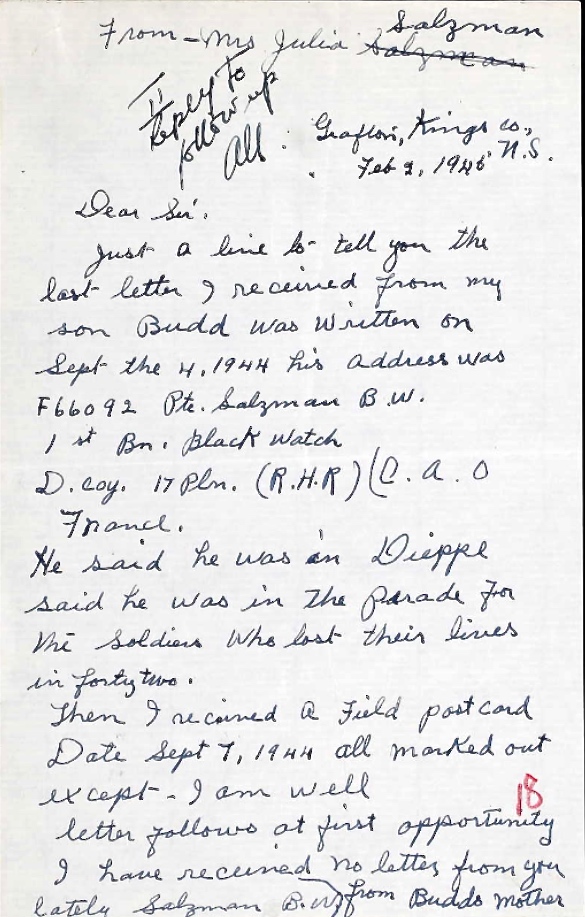 From - Mrs Julia Salzman Salzman
Reply to
follow up
All.
Grafton, Kings co.,
N.S.
Feb 2, 1946
Dear Sir.
Just a line to tell you the
last letter I received from my
son Budd was written on
Sept the 4, 1944 his address was
F66092 Pte. Salzman B.W.
1st Bn. Black Watch
D. coy. 17 Pln. (R.H.R) (C.A.O
France.
He said he was in Dieppe
said he was in the Parade for
the Soldiers who lost their lives
in forty two.
Then I received a Field postcard
Date Sept 7, 1944 all marked out
except - I am well
18
letter follows at first opportunity
I have received no letter from you
lately Salzman B.W. from Budds Mother